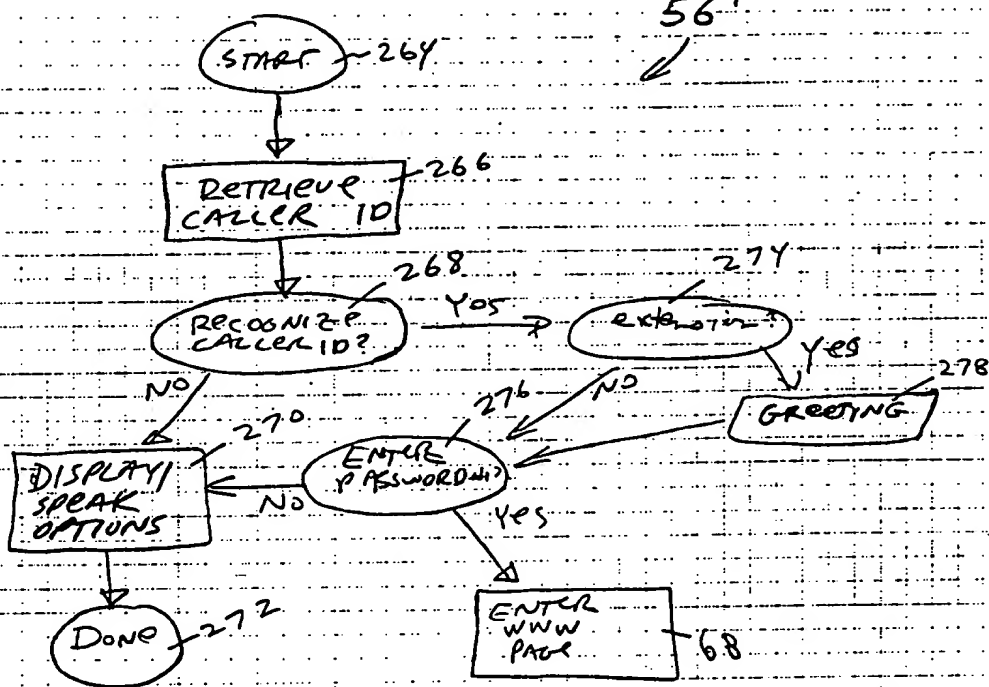 56
START 264
266
RETRIEVE
CALLER ID
268
274
RECOGNIZE
CALLER ID?
YES
YES
NO
276
NO
278
GREETING
270
ENTER
PASSWORD
DISPLAY/
SPEAK
OPTIONS
NO
YES
DONE
272
ENTER
WWW
PAGE
68